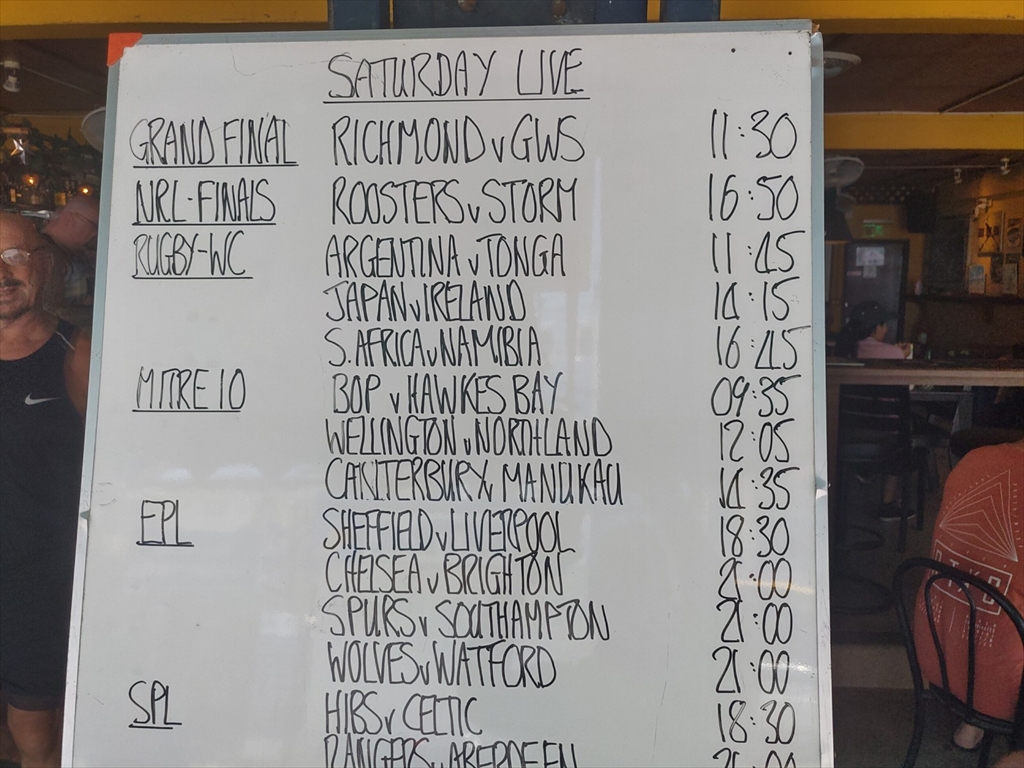 SATURDAY LIVE
GRAND FINAL RICHMOND v GWS 11:30
NRL-FINALS ROOSTERS v STORM 16:50
RUGBY-WC ARGENTINA v TONGA 11:45
JAPAN v IRELAND 14:15
S. AFRICA v NAMIBIA 16:45
MITRE 10 BOP v HAWKES BAY 09:35
WELLINGTON v NORTHLAND 12:05
CANTERBURY v MANUKAU 14:35
EPL SHEFFIELD v LIVERPOOL 18:30
CHELSEA v BRIGHTON 21:00
SPURS v SOUTHAMPTON 21:00
WOLVES v WATFORD 21:00
SPL HIBS v CELTIC 18:30
RANGERS v ABERDEEN 21:00